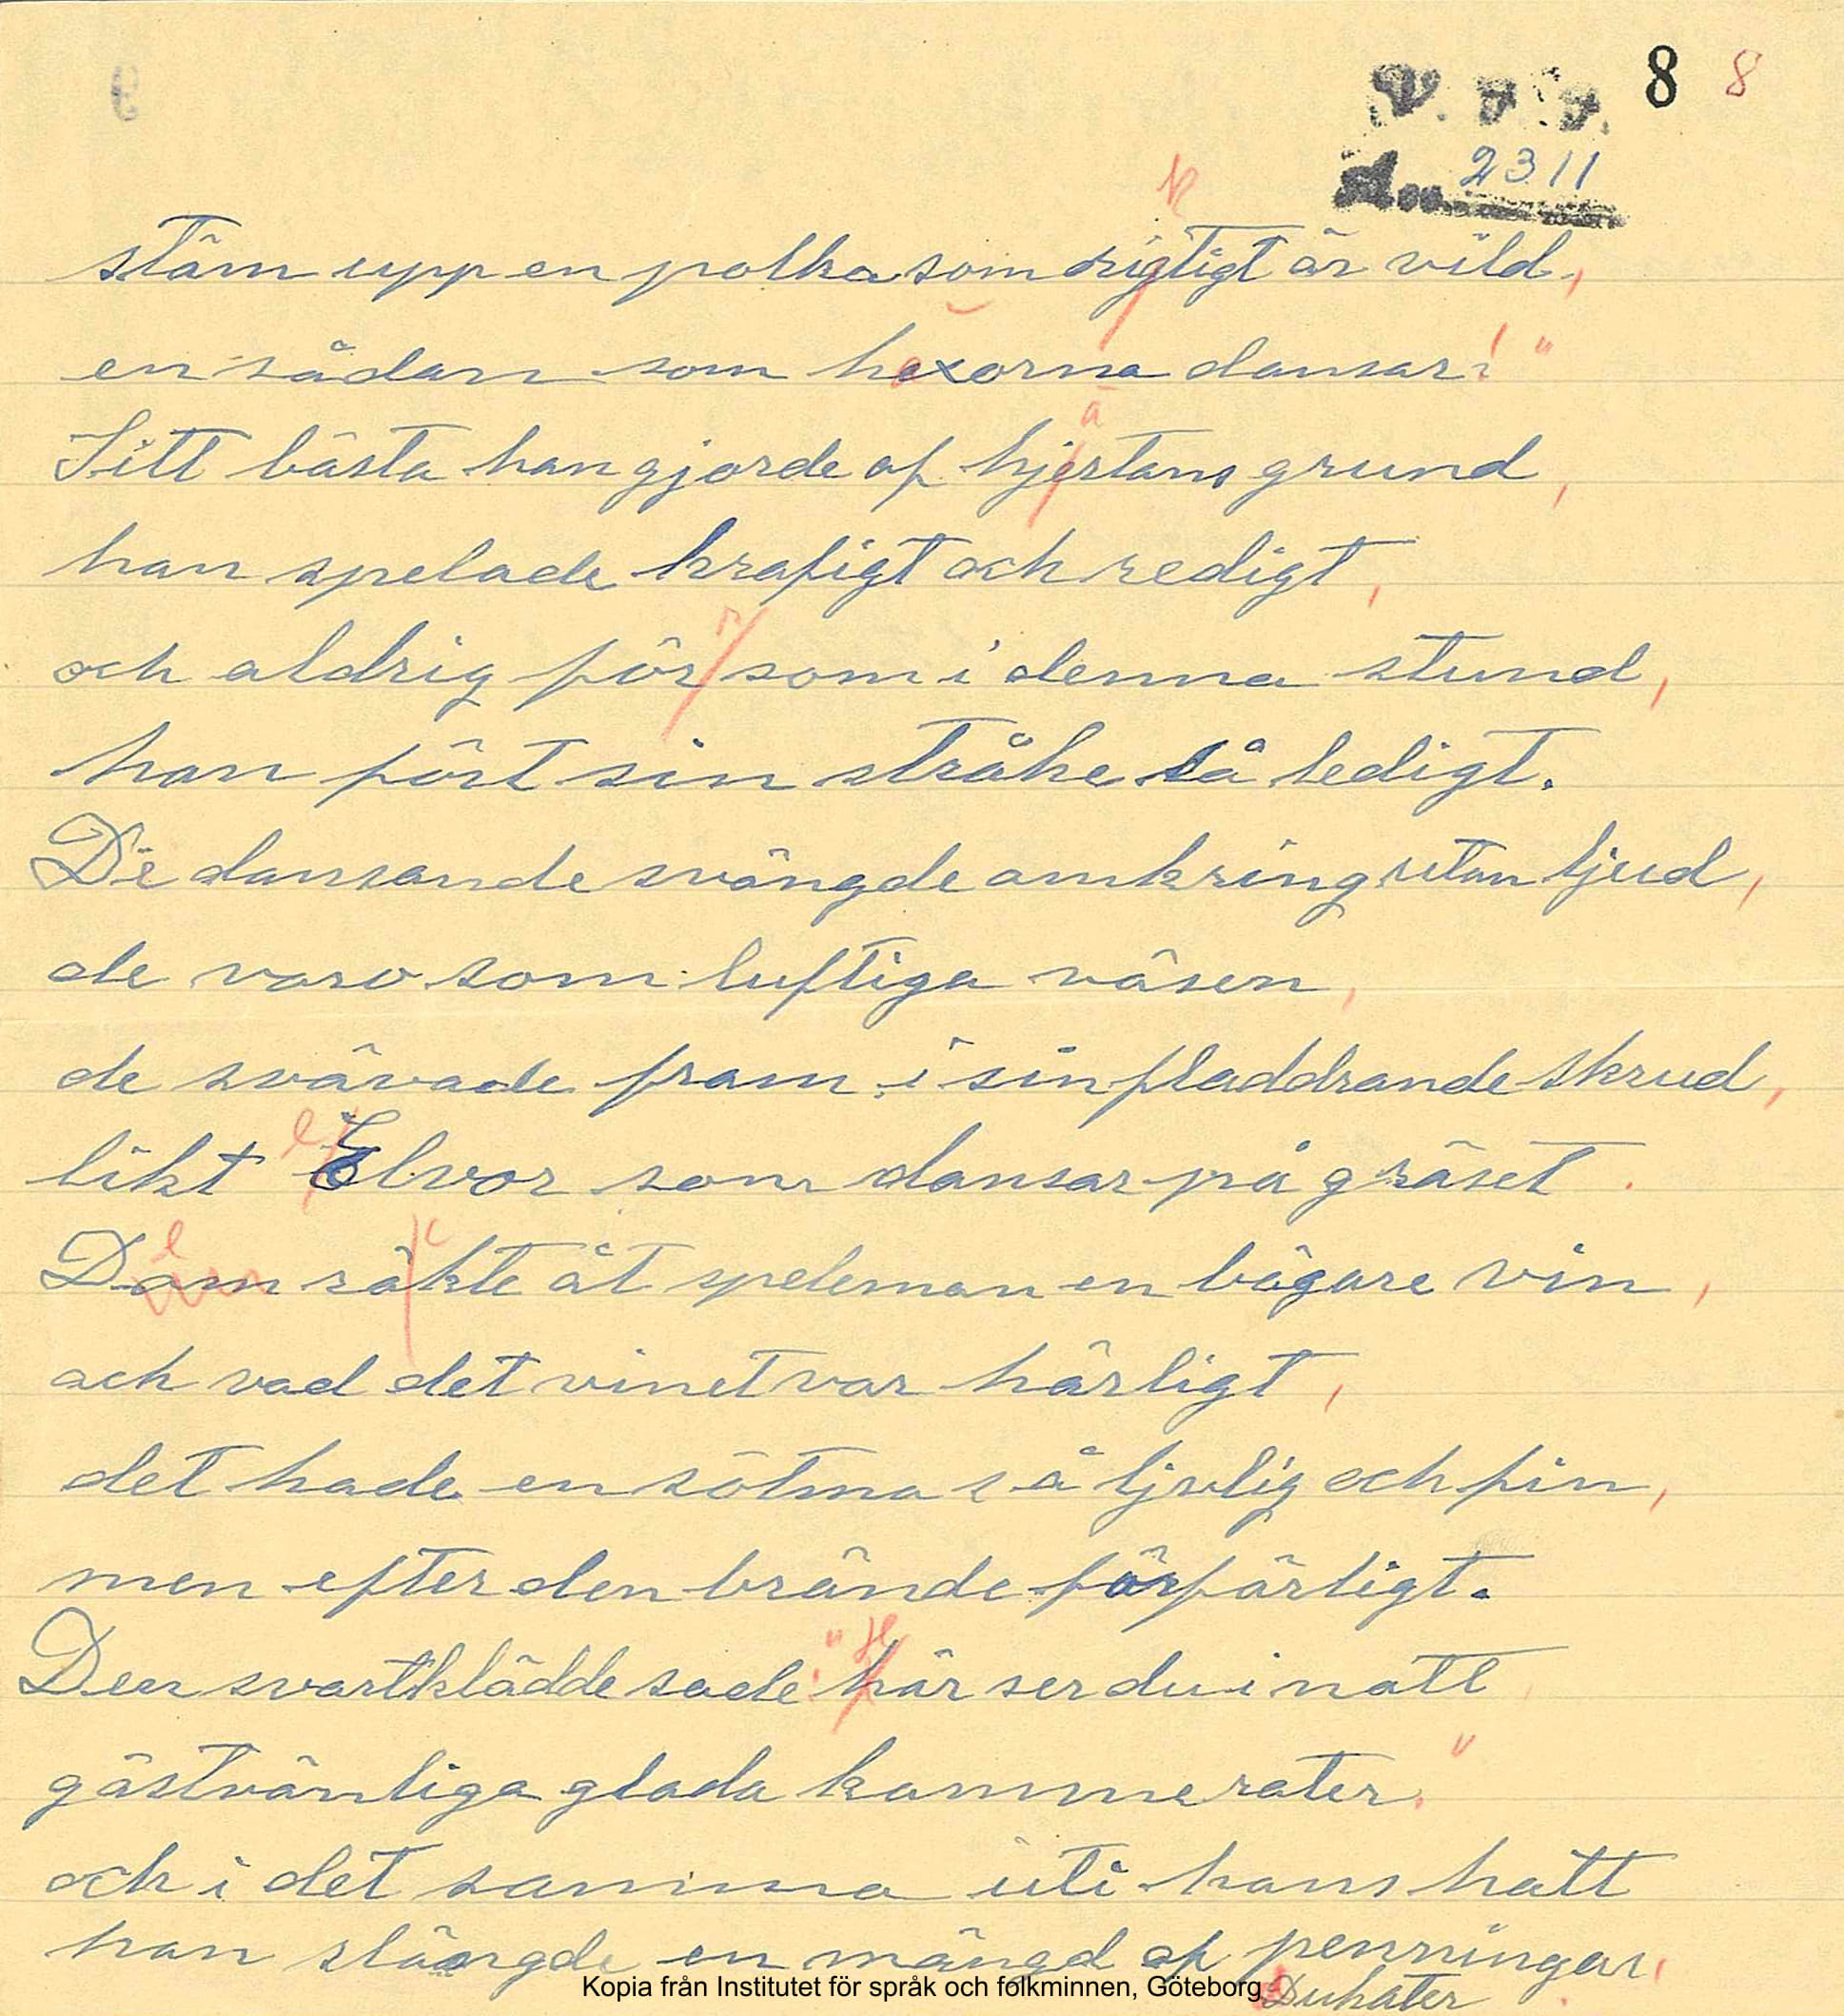 8 8
V. F. F.
2311
k
stäm upp en polka som rigtigt är vild,
en sådan som hexorna dansar!"
ä
Sitt bästa han gjorde af hjertans grund,
han spelade krafigt och redigt,
r
och aldrig för som i denna stund,
han fört sin stråke så ledigt.
De dansande svängde omkring utan ljud,
de voro som luftiga väsen,
de svävade fram i sin fladdrande skrud,
e
likt Elvor som dansar på gräset.
e c
Dom räkte åt speleman en bägare vin,
och vad det vinet var härligt,
det hade en sötma så ljvlig och fin,
men efter den brände förfärligt.
" H
Den svartklädde sade: här ser du i natt
gästvänliga glada kammerater."
och i det samma uti hans hatt
han slängde en mängd af penningar,
Dukater.
Kopia från Institutet för språk och folkminnen, Göteborg